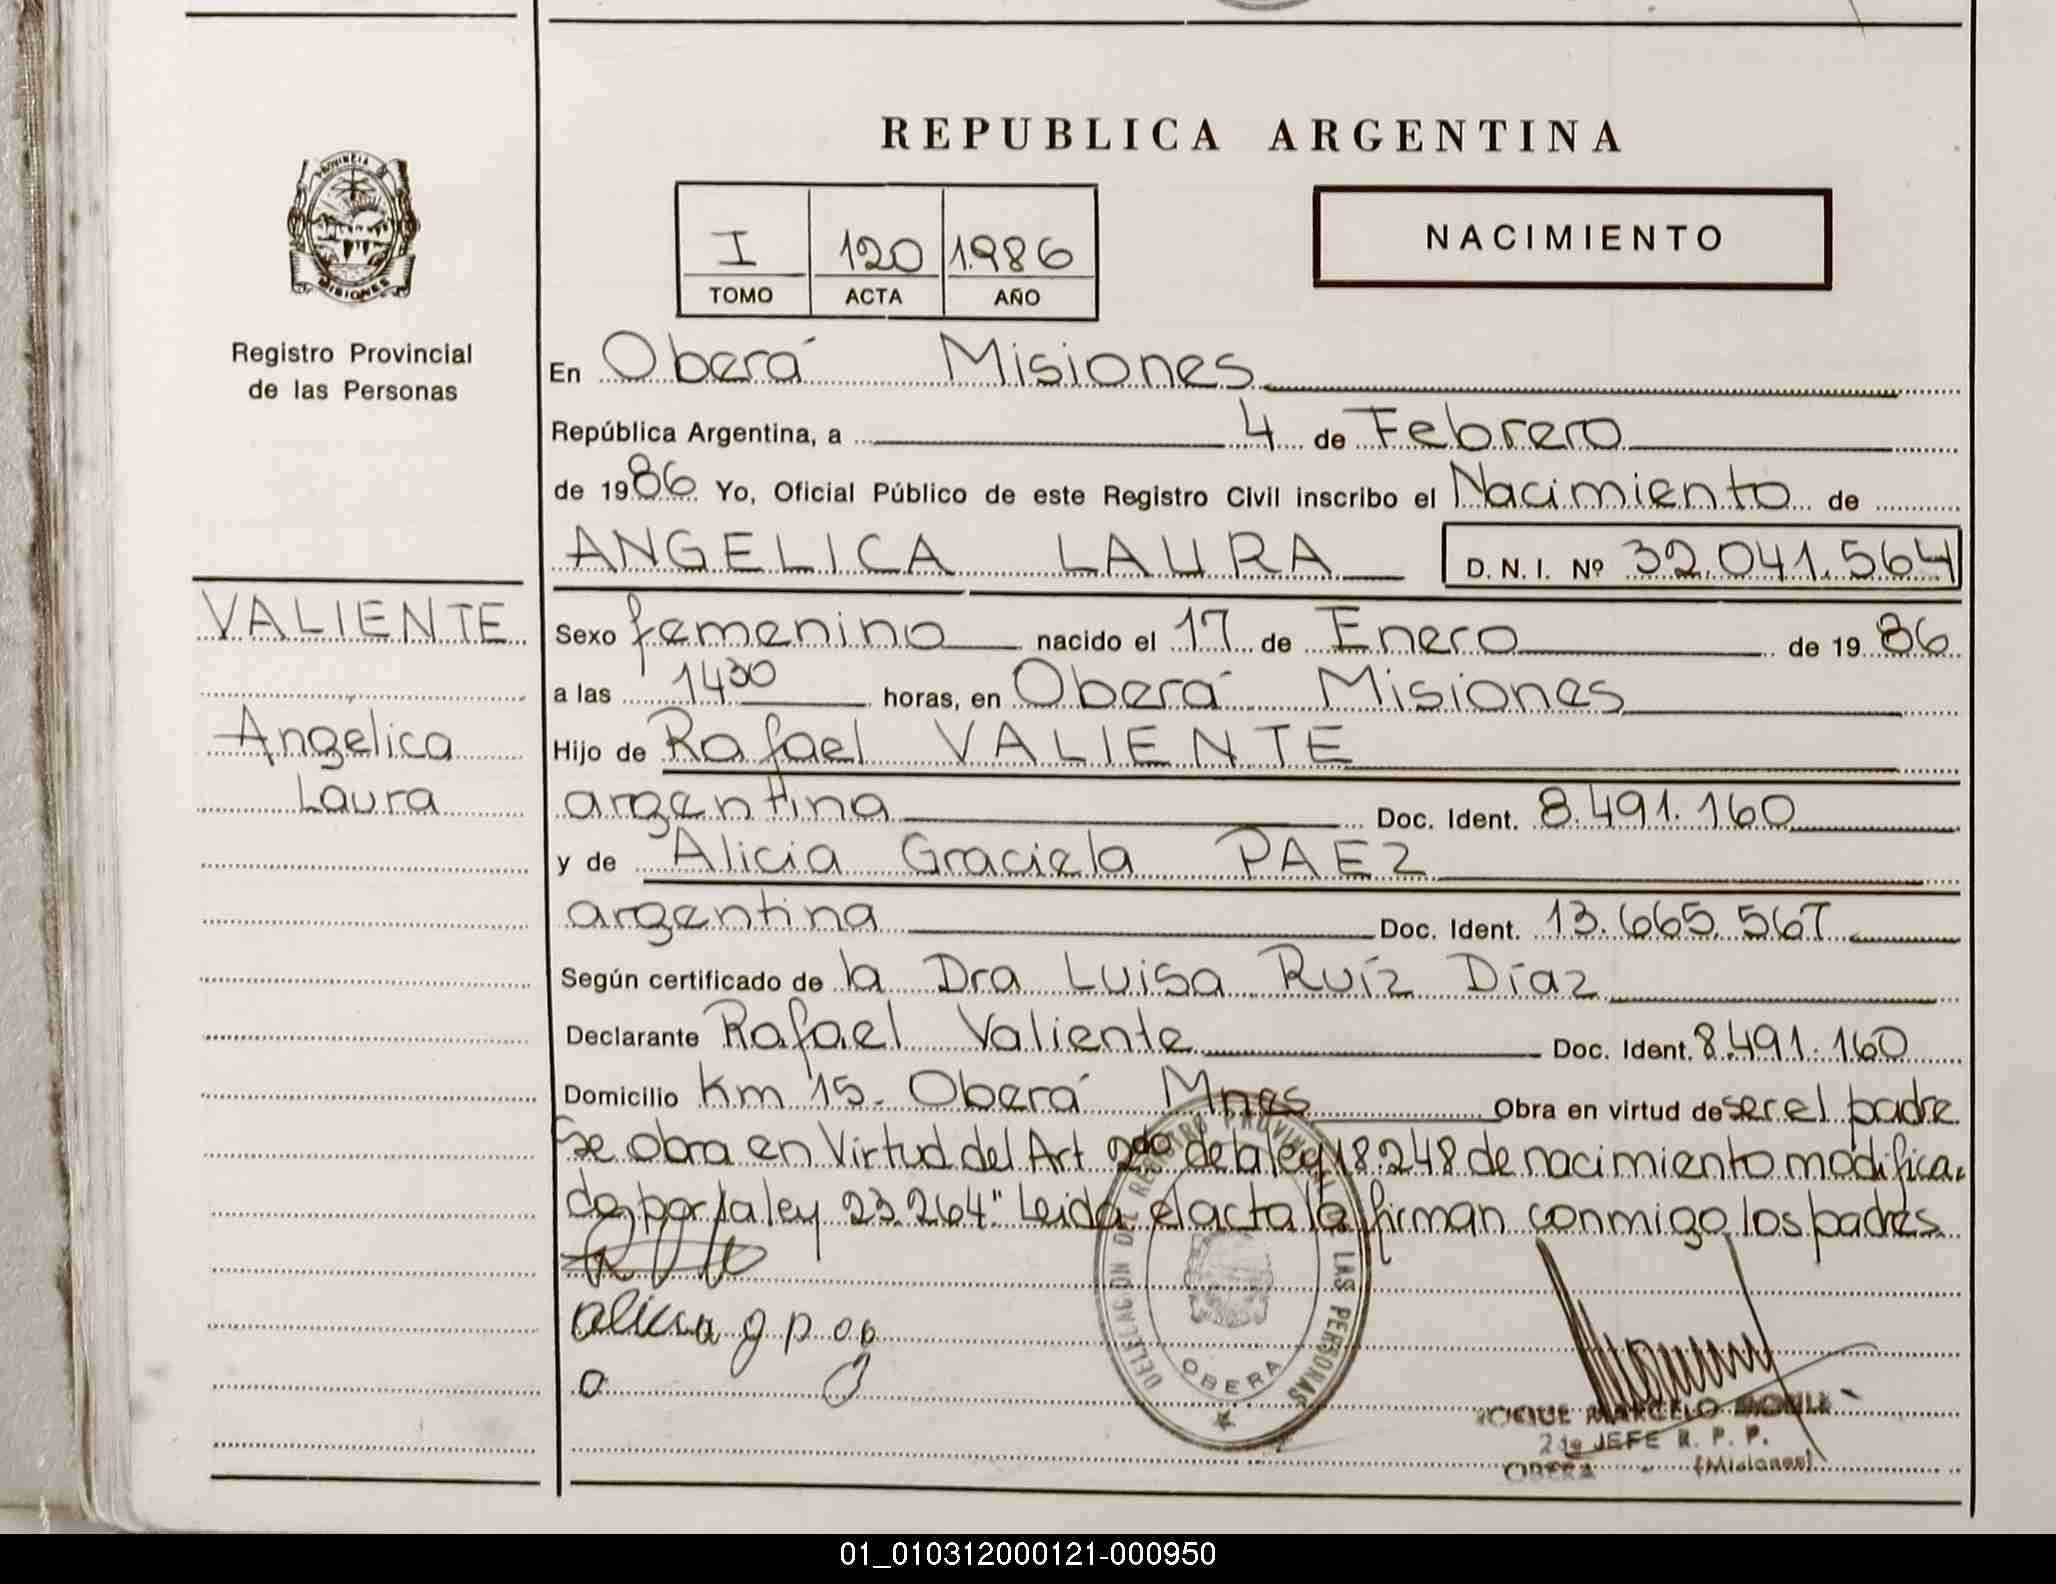 REPUBLICA ARGENTINA
PROVINCIA DE
MISIONES
Registro Provincial
de las Personas
I 120 1.986
TOMO ACTA AÑO
NACIMIENTO
En Oberá Misiones
República Argentina, a 4 de Febrero
de 1986 Yo, Oficial Público de este Registro Civil inscribo el Nacimiento de
ANGELICA LAURA D.N.I. Nº 32.041.564
VALIENTE
Angélica
Laura
Sexo femenino nacido el 17 de Enero de 1986
a las 1430 horas, en Oberá Misiones
Hijo de Rafael VALIENTE
argentina Doc. Ident. 8.491.160
y de Alicia Graciela PAEZ
argentina Doc. Ident. 13.665.567
Según certificado de la Dra Luisa Ruíz Díaz
Declarante Rafael Valiente Doc. Ident. 8.491.160
Domicilio Km 15. Oberá Mnes Obra en virtud de ser el padre
Se obra en Virtud del Art 2do de la ley 18.248 de nacimiento modifica-
do por la ley 23.264" Leida el acta la firman conmigo los padres
alicia g p
DELEGACION DEL REGISTRO PROVINCIAL DE LAS PERSONAS
OBERA
ROQUE MARCELO
2do JEFE R. P. P.
OBERA (Misiones)
01_010312000121-000950